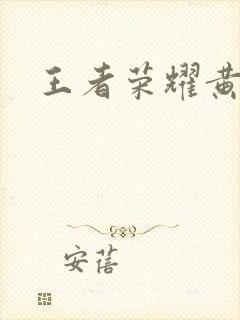 王者荣耀黄
安蓓